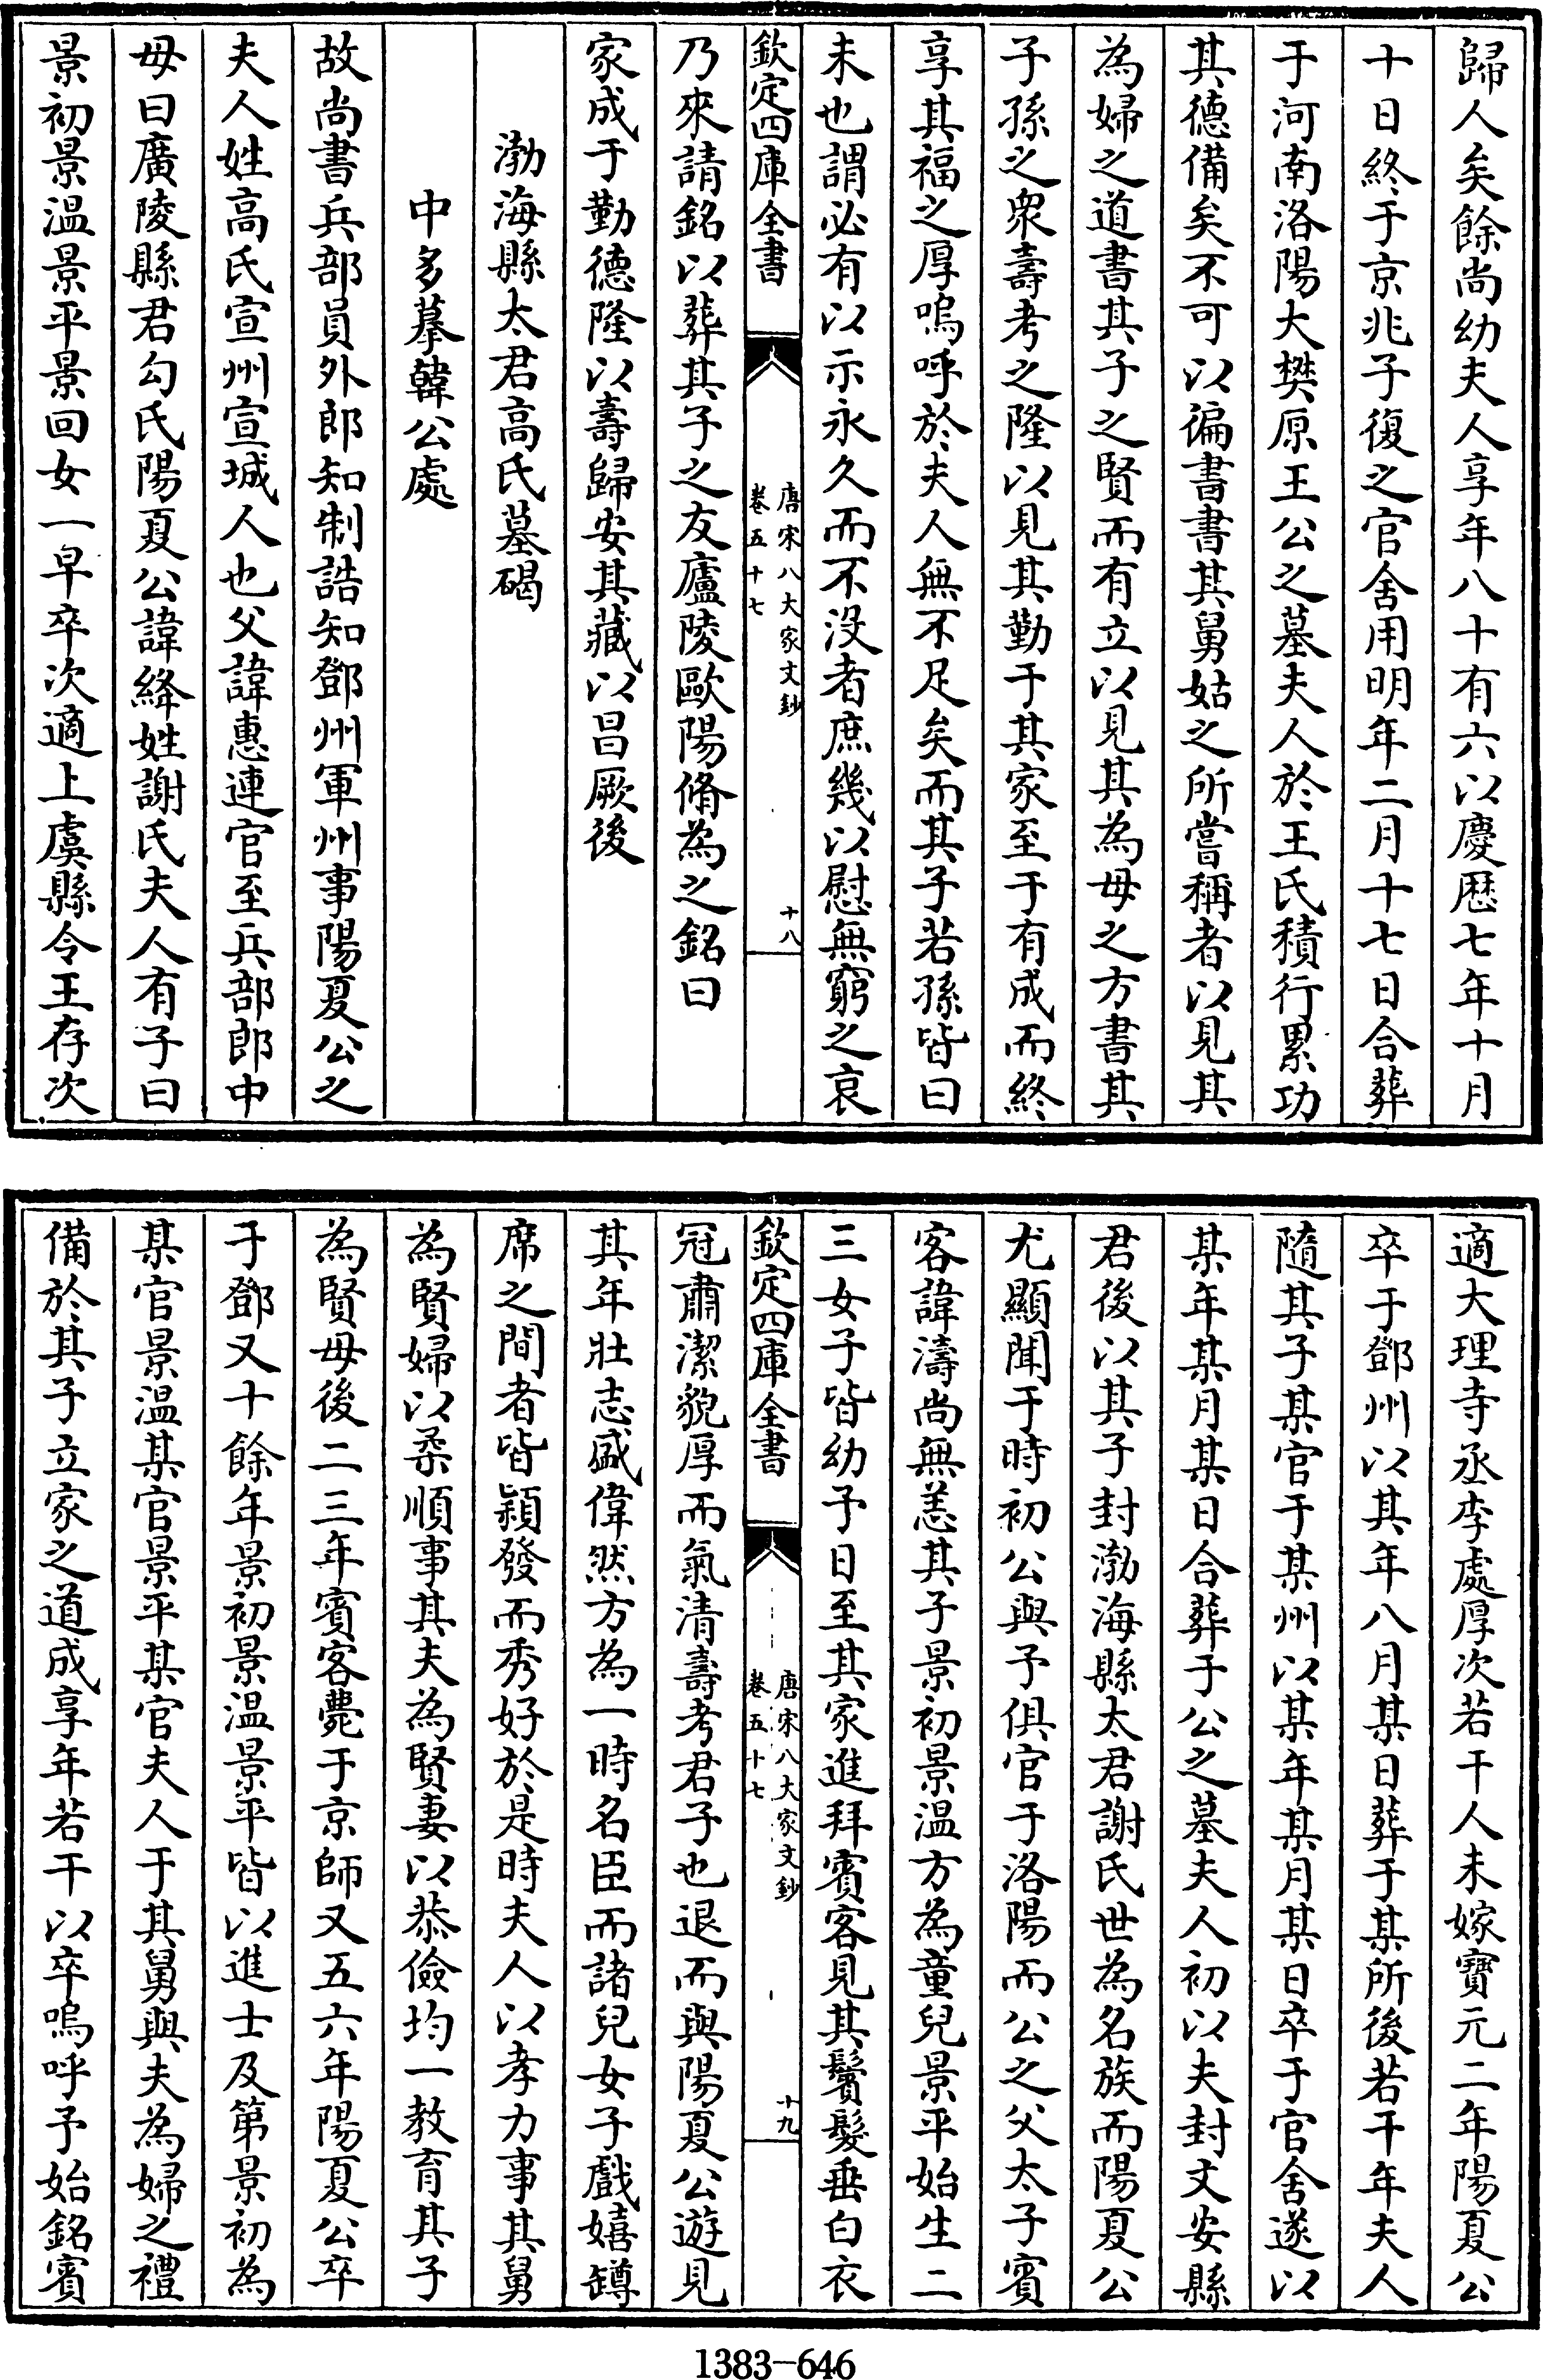 歸人矣餘尚幼夫人享年八十有六以慶厯七年十月
十日終于京兆子復之官舍用明年二月十七日合葬
于河南洛陽大樊原王公之墓夫人於王氏積行累功
其德備矣不可以徧書書其舅姑之所嘗稱者以見其
為婦之道書其子之賢而有立以見其為母之方書其
子孫之衆壽考之隆以見其勤于其家至于有成而終
享其福之厚嗚呼於夫人無不足矣而其子若孫皆曰
未也謂必有以示永久而不没者庶幾以慰無窮之哀
欽定四庫全書
唐宋八大家文鈔
卷五十七
十八
乃來請銘以葬其子之友廬陵歐陽脩為之銘曰
家成于勤德隆以壽歸安其藏以昌厥後
渤海縣太君高氏墓碣
中多摹韓公處
故尚書兵部員外郎知制誥知鄧州軍州事陽夏公之
夫人姓高氏宣州宣城人也父諱惠連官至兵部郎中
母曰廣陵縣君勾氏陽夏公諱絳姓謝氏夫人有子曰
景初景温景平景回女一早卒次適上虞縣令王存次
適大理寺丞李處厚次若干人未嫁寶元二年陽夏公
卒于鄧州以其年八月某日葬于某所後若干年夫人
隨其子某官于某州以某年某月某日卒于官舍遂以
某年某月某日合葬于公之墓夫人初以夫封文安縣
君後以其子封渤海縣太君謝氏世為名族而陽夏公
尤顯聞于時初公與予俱官于洛陽而公之父太子賓
客諱濤尚無恙其子景初景温方為童兒景平始生二
三女子皆幼予日至其家進拜賓客見其鬢髮垂白衣
欽定四庫全書
唐宋八大家文鈔
卷五十七
十九
冠肅潔貌厚而氣清壽考君子也退而與陽夏公遊見
其年壯志盛偉然方為一時名臣而諸兒女子戲嬉罇
席之間者皆穎發而秀好於是時夫人以孝力事其舅
為賢婦以柔順事其夫為賢妻以恭儉均一教育其子
為賢母後二三年賓客薨于京師又五六年陽夏公卒
于鄧又十餘年景初景温景平皆以進士及第景初為
某官景温某官景平某官夫人于其舅與夫為婦之禮
備於其子立家之道成享年若干以卒嗚呼予始銘賓
1383-646